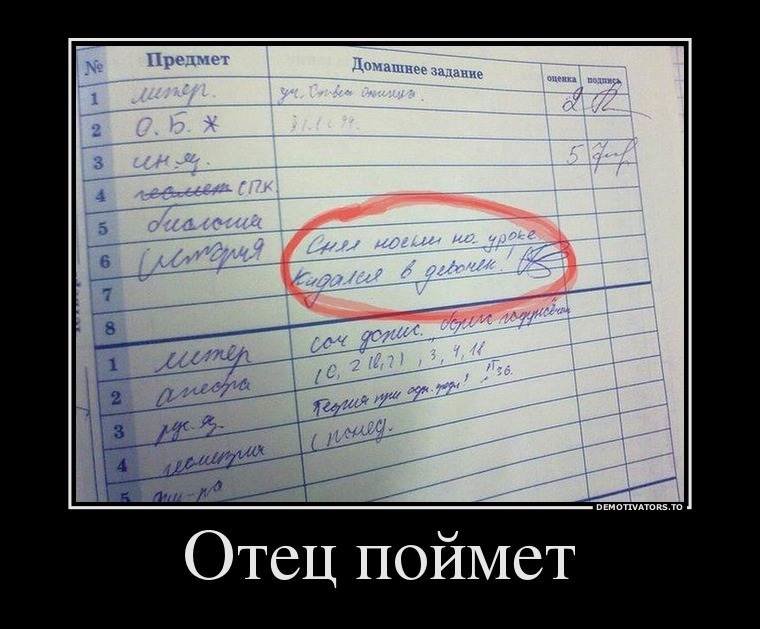 № Предмет Домашнее задание оценка подпись
1 литер. 2
2 О. Б. Ж
3 ин.яз. 5
4 геомет СПК
5 биология
6 история Снял носки на уроке
7 Кидался в девочек!
8
1 литер соч допис.
2 алгебра 3, 4, 18
3 рус. яз. Теория при
4 геометрия
5 физ-ра
DEMOTIVATORS.TO
Отец поймет